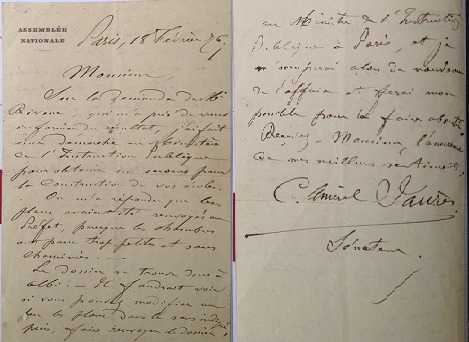 ASSEMBLÉE
NATIONALE
Paris, 18 Février 76
Monsieur
Sur la demande de Mr
qui m'a prié de vous
du résultat, j'ai fait
une démarche au Ministère
de l'Instruction publique
pour obtenir un secours pour
la construction de vos écoles.
On m'a répondu que les
plans avaient été renvoyés au
Préfet, parce que les chambres
un peu trop petites et sans
cheminées.
Le dossier se trouve donc à
Albi. Il faudrait voir
si vous pouvez modifier un
peu les plans dans le sens indiqué
puis, faire renvoyer le dossier
au Ministre de l'Instruction
publique à Paris, et je
alors de nouveau
de l'affaire et ferai mon
possible pour la faire
Monsieur, l'assurance
de mes meilleurs sentiments
C. Amiral Jaurès
Sénateur